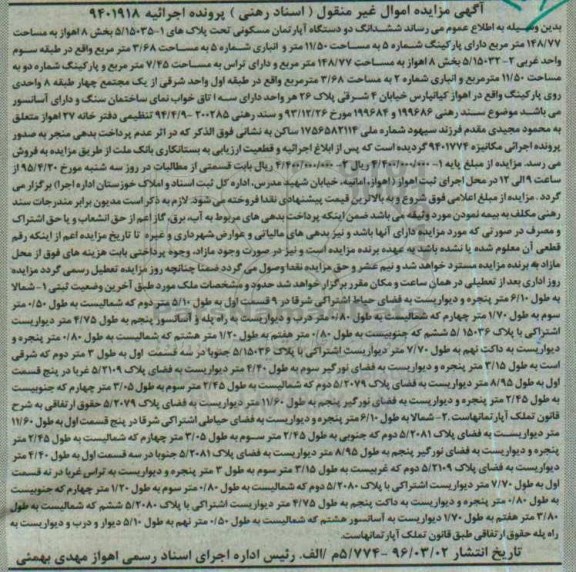 آگهی مزایده اموال غیر منقول ( اسناد رهنی ) پرونده اجرائیه ۹۴۰۱۹۱۸
بدین وسیله به اطلاع عموم می رساند ششدانگ دو دستگاه آپارتمان مسکونی تحت پلاک های ۱-۵/۱۵۰۳۵ بخش ۸ اهواز به مساحت
۱۴۸/۷۷ متر مربع دارای پارکینگ شماره ۵ به مساحت ۱۱/۵۰ متر و انباری شماره ۵ به مساحت ۳/۶۸ متر مربع واقع در طبقه سوم
واحد غربی ۲- ۵/۱۵۰۳۲ بخش ۸ اهواز به مساحت ۱۴۸/۷۷ مترمربع و دارای تراس به مساحت ۷/۴۵ متر مربع و پارکینگ شماره دو به
مساحت ۱۱/۵۰ مترمربع و انباری شماره ۲ به مساحت ۳/۶۸ مترمربع واقع در طبقه اول واحد شرقی از یک مجتمع چهار طبقه ۸ واحدی
روی پارکینگ واقع در اهواز کیانپارس خیابان ۴ شرقی پلاک ۲۶ هر واحد دارای سه اتاق خواب نمای ساختمان سنگ و دارای آسانسور
می باشد موضوع سند رهنی ۱۹۹۶۸۶ و ۱۹۹۶۸۴ مورخ ۹۳/۱۲/۲۶ و سند رهنی ۲۰۰۲۸۵-۹۴/۴/۹ تنظیمی دفتر خانه ۲۷ اهواز متعلق
به محمود مجیدی مقدم فرزند سپهود شماره ملی ۱۷۵۶۵۸۲۱۱۴ ساکن به نشانی فوق الذکر که در اثر عدم پرداخت بدهی منجر به صدور
پرونده اجرائی مکانیزه ۹۴۰۱۷۷۴ گردیده است که پس از ابلاغ اجرائیه و قطعیت ارزیابی به بستانکاری بانک ملت از طریق مزایده به فروش
می رسد. مزایده از مبلغ پایه ۱- ۴/۴۰۰/۰۰۰/۰۰۰ ریال ۲- ۴/۴۰۰/۰۰۰/۰۰۰ ریال بابت قسمتی از مطالبات در روز سه شنبه مورخ ۹۵/۴/۳۰ از
ساعت ۹ الی ۱۲ در محل اجرای ثبت اهواز (اهواز، امانیه، خیابان شهید مدرس، اداره کل ثبت اسناد و املاک خوزستان اداره اجرا) برگزار می
گردد . مزایده از مبلغ اعلامی فوق شروع و به بالاترین قیمت پیشنهادی نقدا فروخته می شود. لازم به ذکر است مدیون برابر مندرجات سند
رهنی مکلف به بیمه نمودن مورد وثیقه می باشد ضمن اینکه پرداخت بدهی های مربوط به آب، برق، گاز اعم از حق انشعاب و یا حق اشتراک
و مصرف در صورتی که مورد مزایده دارای آنها باشد و نیز بدهی های مالیاتی و عوارض شهرداری و غیره تا تاریخ مزایده اعم از اینکه رقم
قطعی آن معلوم شده یا نشده باشد به عهده برنده مزایده است و نیز در صورت وجود مازاد، وجوه پرداختی بابت هزینه های فوق از محل
مازاد به برنده مزایده مسترد خواهد شد و نیم عشر و حق مزایده نقدا وصول می گردد ضمنا چنانچه روز مزایده تعطیل رسمی گردد مزایده
روز اداری بعد از تعطیلی در همان ساعت و مکان مقرر برگزار خواهد شد حدود و مشخصات ملک مورد طبق آخرین وضعیت ثبتی ۱- شمالا
به طول ۶/۱۰ متر پنجره و دیواریست به فضای حیاط اشتراکی شرقا در ۹ قسمت اول به طول ۵/۱۰ متر دوم که شمالیست به طول ۰/۵۰ متر
سوم به طول ۱/۷۰ متر چهارم که شمالیست به طول ۰/۸۰ متر درب و دیواریست به راه پله و آسانسور پنجم به طول ۴/۷۵ متر دیواریست
اشتراکی با پلاک ۵/۱۵۰۳۶ ششم که جنوبیست به طول ۰/۸۰ متر هفتم به طول ۱/۲۰ متر هشتم که شمالیست به طول ۰/۸۰ متر پنجره و
دیواریست به داکت نهم به طول ۷/۷۰ متر دیواریست اشتراکی با پلاک ۵/۱۵۰۳۶ جنوبا در سه قسمت اول به طول ۳ متر دوم که شرقی
است به طول ۳/۱۵ متر پنجره و دیواریست به فضای نورگیر سوم به طول ۴/۴۰ متر دیواریست به فضای پلاک ۵/۲۱۰۹ غربا در پنج قسمت
اول به طول ۸/۹۵ متر دیواریست به فضای پلاک ۵/۲۰۷۹ دوم که شمالیست به طول ۲/۴۵ متر سوم به طول ۳/۰۵ متر چهارم که جنوبیست
به طول ۲/۴۵ متر پنجره و دیواریست به فضای نورگیر پنجم به طول ۱۱/۶۰ متر دیواریست به فضای پلاک ۵/۲۰۷۹ حقوق ارتفاقی به شرح
قانون تملک آپارتمانهاست. ۲- شمالا به طول ۶/۱۰ متر پنجره و دیواریست به فضای حیاطی اشتراکی شرقا در پنج قسمت اول به طول ۱۱/۶۰
متر دیواریست به فضای پلاک ۵/۲۰۸۱ دوم که جنوبی به طول ۲/۴۵ متر سوم به طول ۳/۰۵ متر چهارم که شمالیست به طول ۲/۴۵ متر
پنجره و دیواریست به فضای نورگیر پنجم به طول ۸/۹۵ متر دیواریست به فضای پلاک ۵/۲۰۸۱ جنوبا در سه قسمت اول به طول ۴/۴۰ متر
دیواریست به فضای پلاک ۵/۲۱۰۹ دوم که غربیست به طول ۳/۱۵ متر سوم به طول ۳ متر پنجره و دیواریست به تراس غربا در نه قسمت
اول به طول ۷/۷۰ متر دیواریست اشتراکی با پلاک ۵/۲۰۸۰ دوم که شمالیست به طول ۰/۸۰ متر سوم به طول ۱/۲۰ متر چهارم که جنوبیست
به طول ۰/۸۰ متر پنجره و دیواریست به داکت پنجم به طول ۴/۷۵ متر دیواریست اشتراکی با پلاک ۵/۲۰۸۰ ششم که شمالیست به طول
۳/۸۰ متر هفتم به طول ۱/۷۰ دیواریست به آسانسور هشتم که شمالیست به طول ۰/۵۰ متر نهم به طول ۵/۱۰ دیوار و درب و دیواریست به
راه پله حقوق ارتفاقی طبق قانون تملک آپارتمانهاست.
تاریخ انتشار ۹۶/۰۳/۰۲ -۵/۷۷۴م /الف. رئیس اداره اجرای اسناد رسمی اهواز مهدی بهمئی